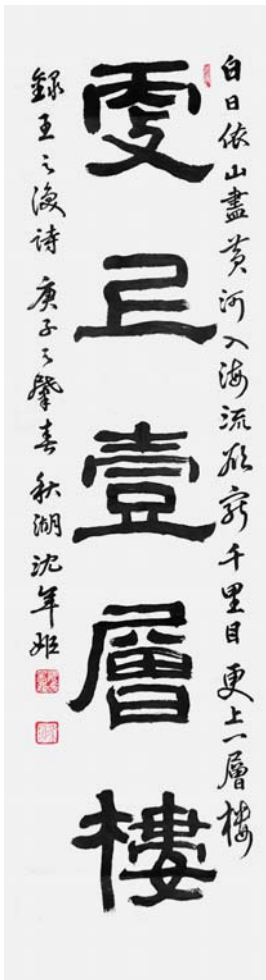 白日依山盡黃河入海流欲窮千里目更上一層樓
更上壹層樓
錄王之渙詩 庚子之肇春 秋湖沈年姬